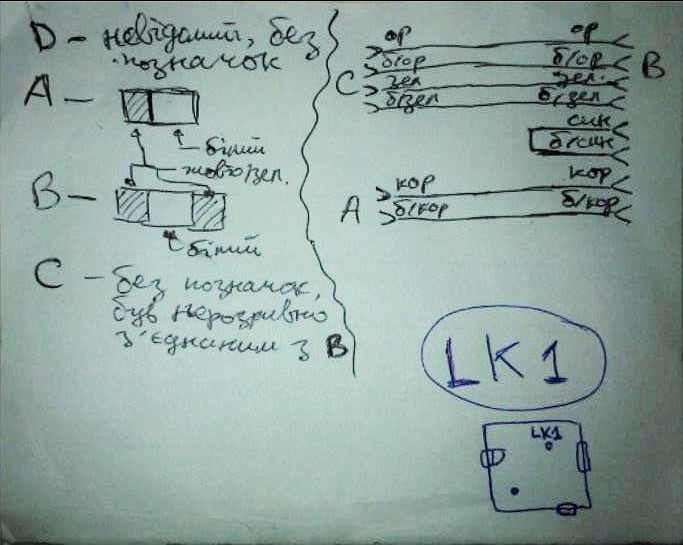 D – невідомий, без
позначок
A –
білий
жовто/зел.
B –
білий
C – без позначок,
був нерозривно
з'єднаним з B
ор ор
б/ор б/ор
C B
зел зел.
б/зел б/зел
син
б/син
кор кор
A
б/кор б/кор
LK1
LK1